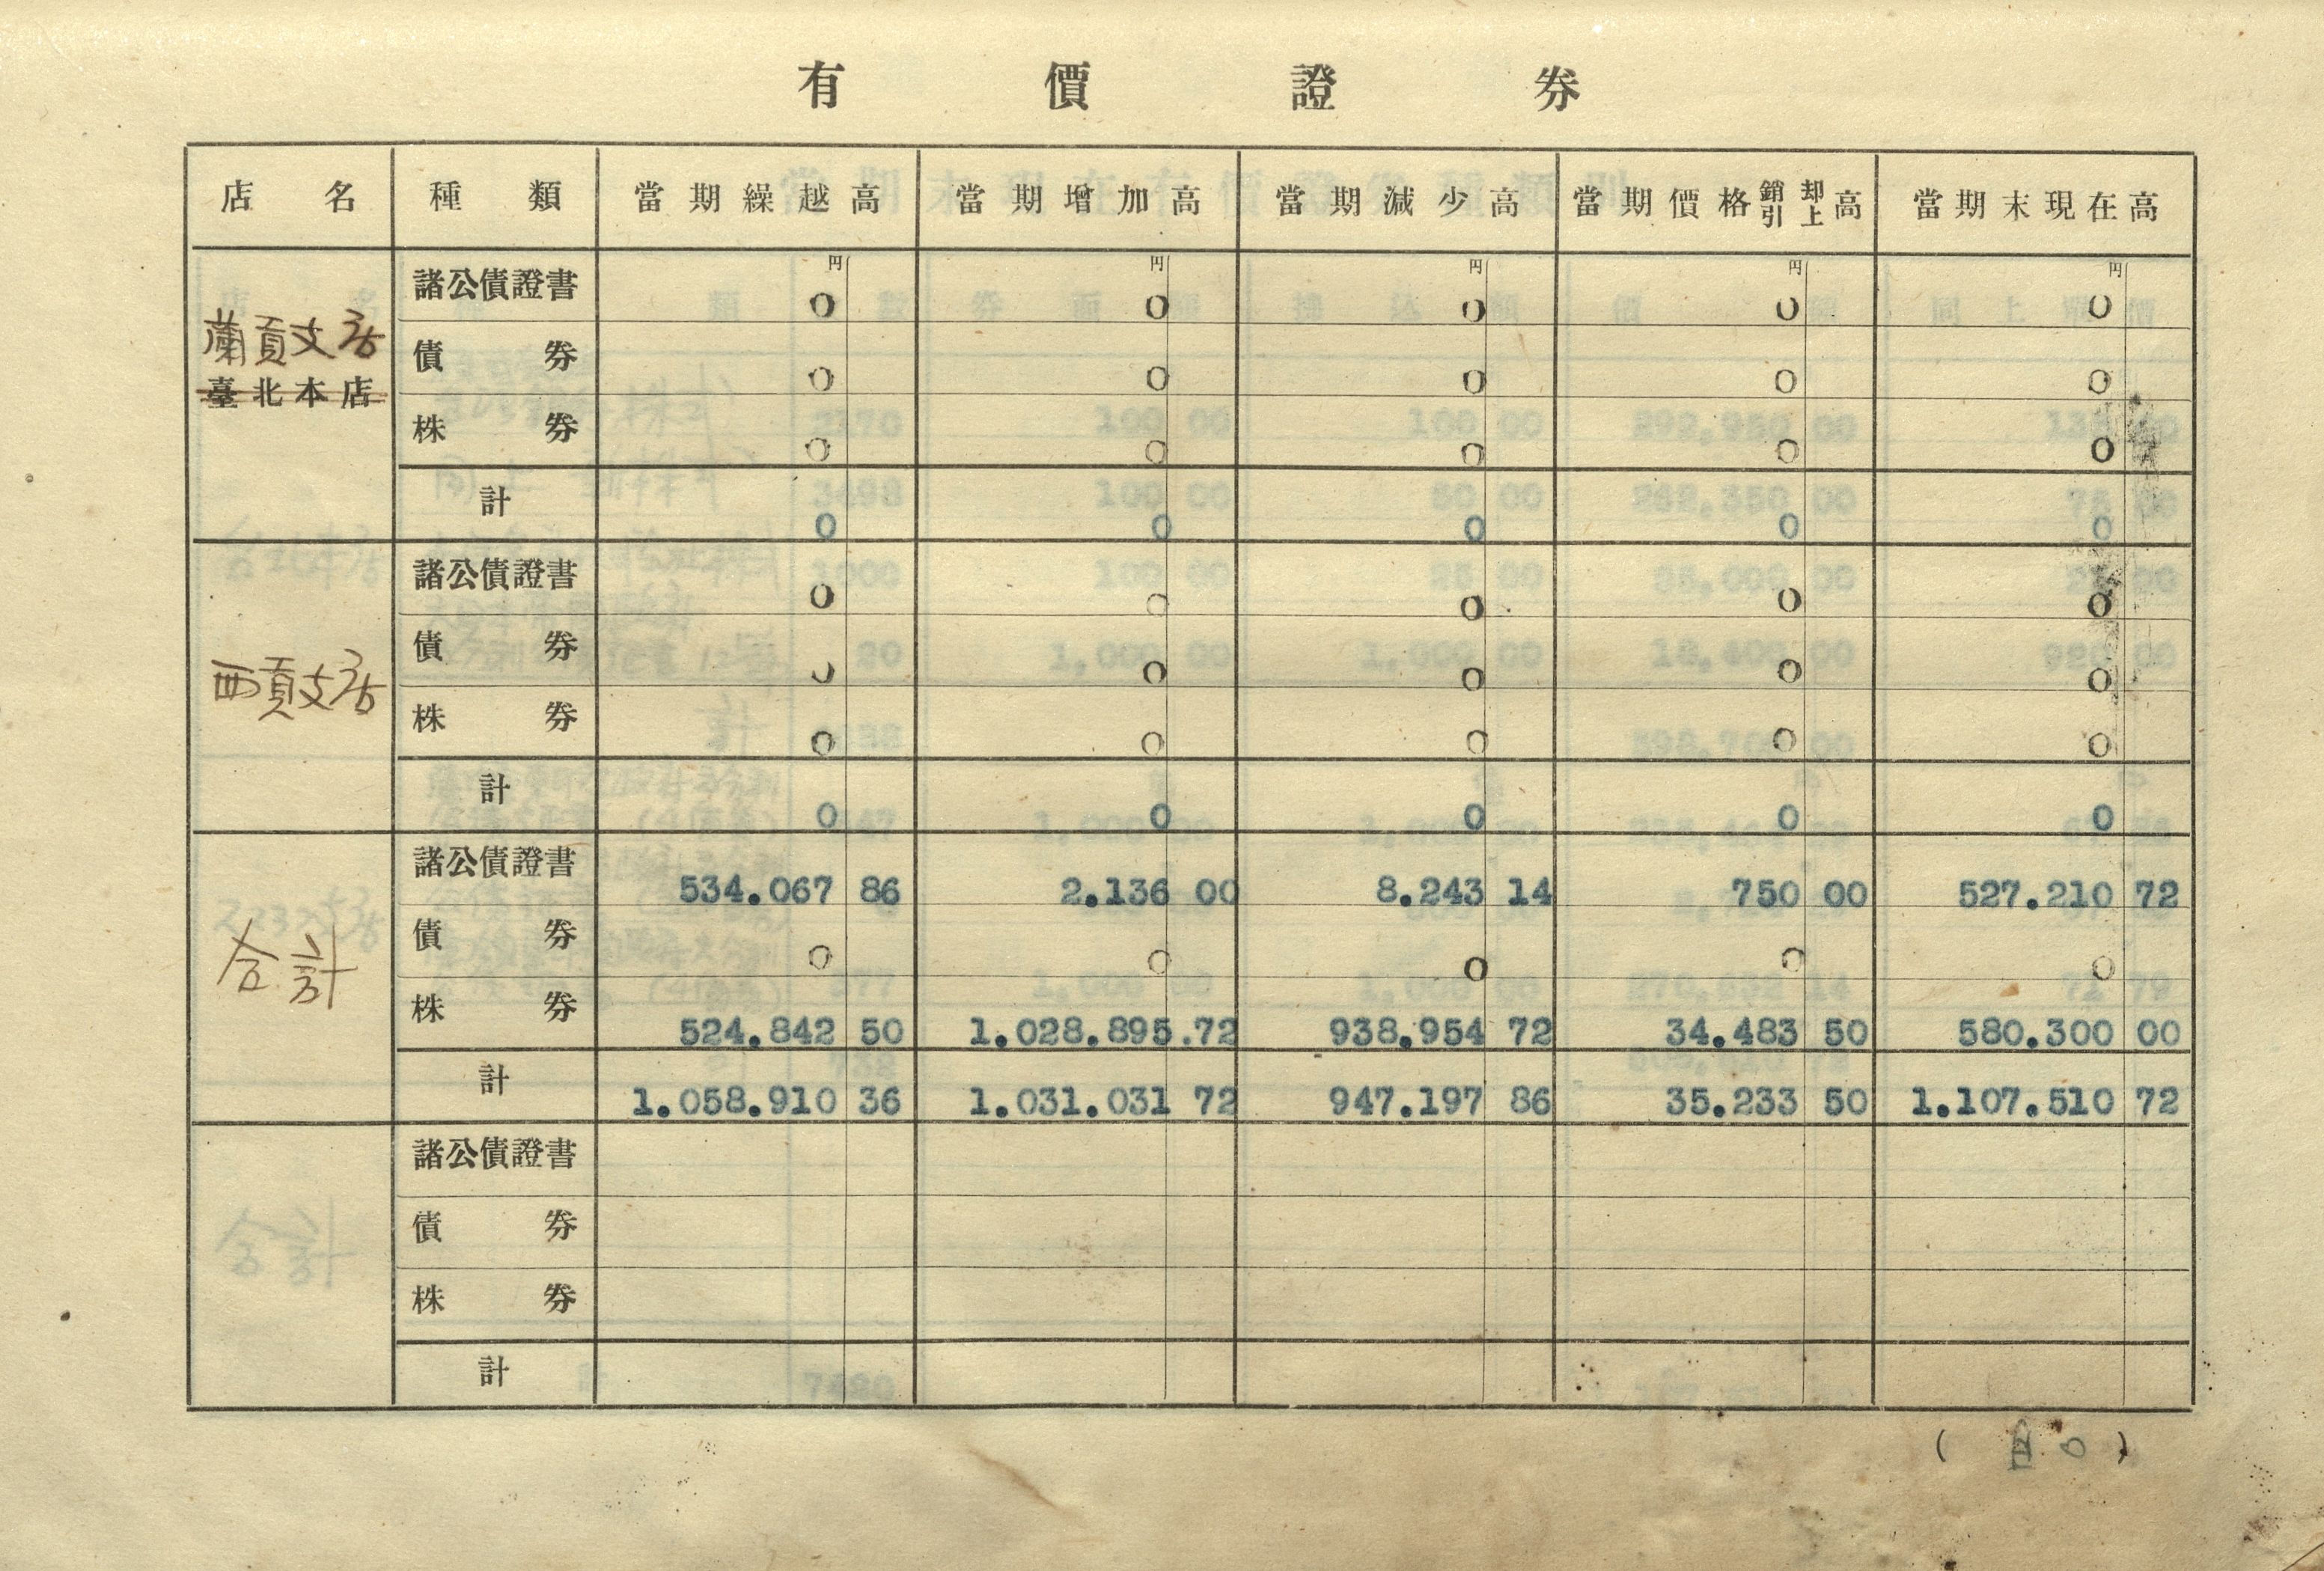 有價證券
店名 種類 當期繰越高 當期增加高 當期減少高 當期價格銷却引上高 當期末現在高
円 円 円 円 円
蘭貢支店
臺北本店
諸公債證書 0 0 0 0 0
債券 0 0 0 0 0
株券 0 0 0 0 0
計 0 0 0 0 0
西貢支店
諸公債證書 0 0 0 0 0
債券 0 0 0 0 0
株券 0 0 0 0 0
計 0 0 0 0 0
合計
諸公債證書 534.067 86 2.136 00 8.243 14 750 00 527.210 72
債券 0 0 0 0 0
株券 524.842 50 1.028.895.72 938.954 72 34.483 50 580.300 00
計 1.058.910 36 1.031.031 72 947.197 86 35.233 50 1.107.510 72
諸公債證書
債券
株券
計